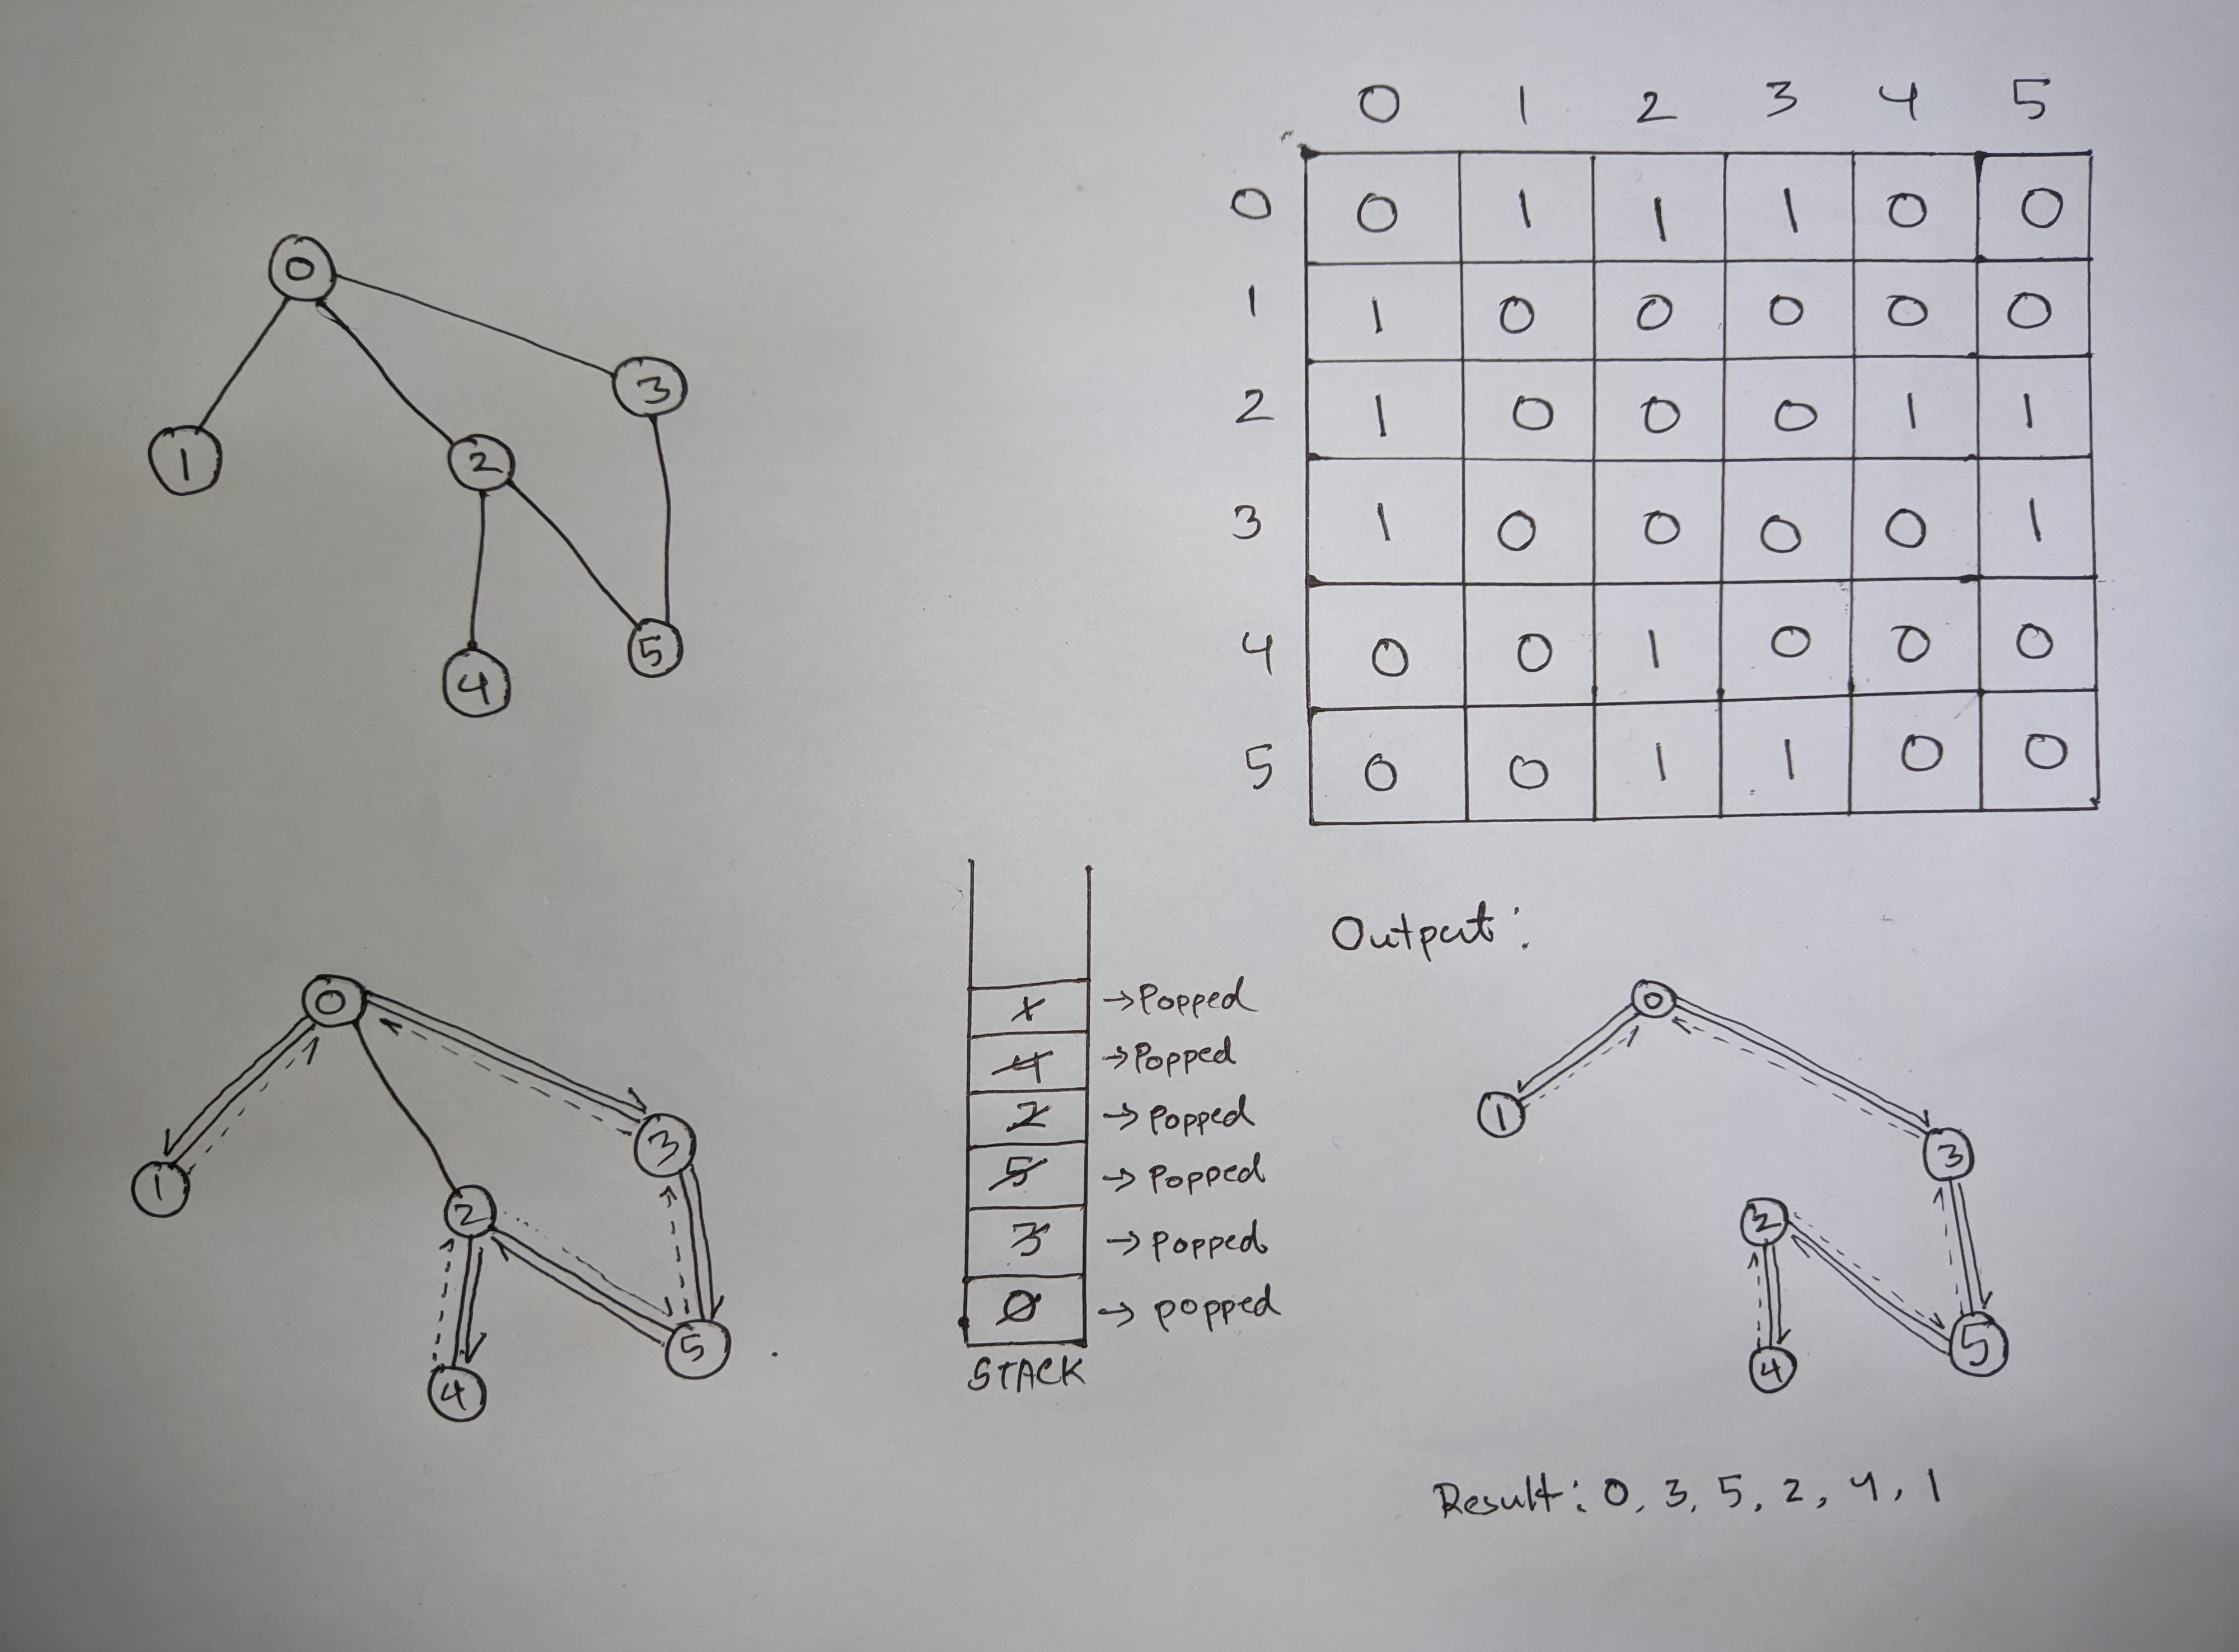 0 1 2 3 4 5
0 0 1 1 1 0 0
1 1 0 0 0 0 0
2 1 0 0 0 1 1
3 1 0 0 0 0 1
4 0 0 1 0 0 0
5 0 0 1 1 0 0
0
3
1
2
5
4
0
3
1
2
5
4
→Popped
4 →Popped
2 → Popped
5 → Popped
3 → Popped
0 → popped
STACK
Output:
0
1
3
2
5
4
Result: 0, 3, 5, 2, 4, 1